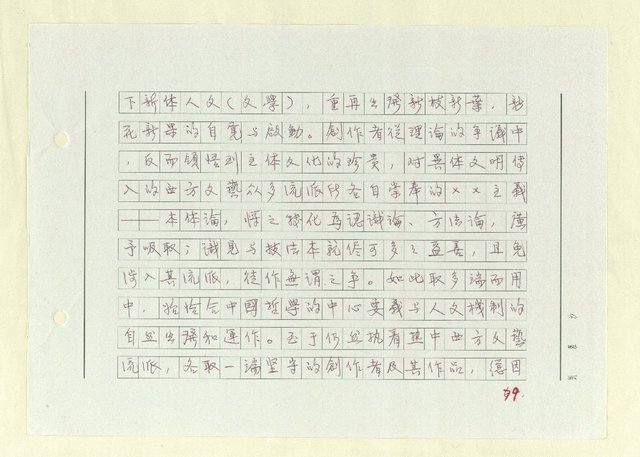 下新体人文(文學)，重再出發新枝新葉，新
花新果的自寬与啟動。創作者從理論的爭議中
，反而領悟到主体文化的珍貴，对異体文明傳
入的西方文藝众多流派所各自崇奉的××主義
——本体論，悟之轉化為認識論、方法論，廣
予吸取；識見与技法本就俱可多之益善，且免
涉入其流派，徒作無謂之爭。如此取多端而用
中，恰恰合中國哲學的中心要義与人文機制的
自然出發和運作。至于仍然執着其中西方文藝
流派，各取一端坚守的創作者及其作品，總因
79.